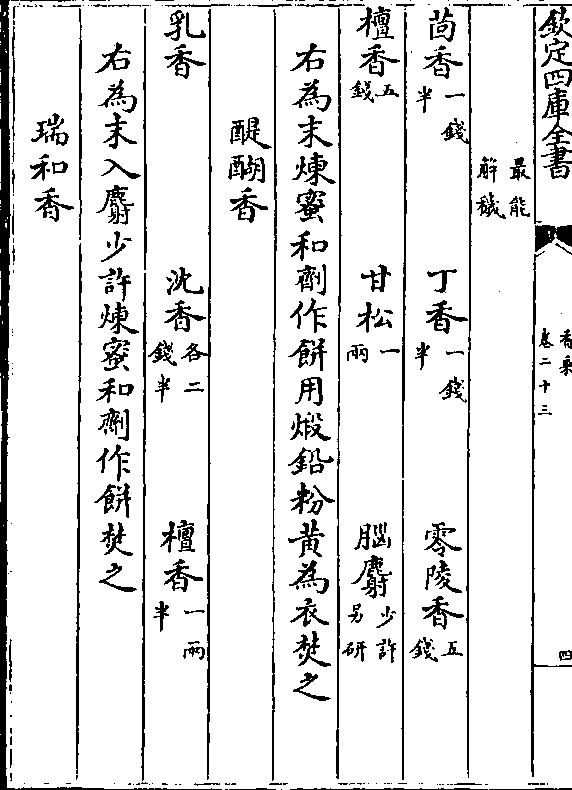 欽定四庫全書
香乘
卷二十三
四
最能
解穢
茴香一錢半　丁香一錢半　零陵香五錢
檀香五錢　甘松一兩　腦麝少許另研
右為末煉蜜和劑作餅用煅鉛粉黄為衣焚之
醍醐香
乳香　沈香各二錢半　檀香一兩半
右為末入麝少許煉蜜和劑作餅焚之
瑞和香